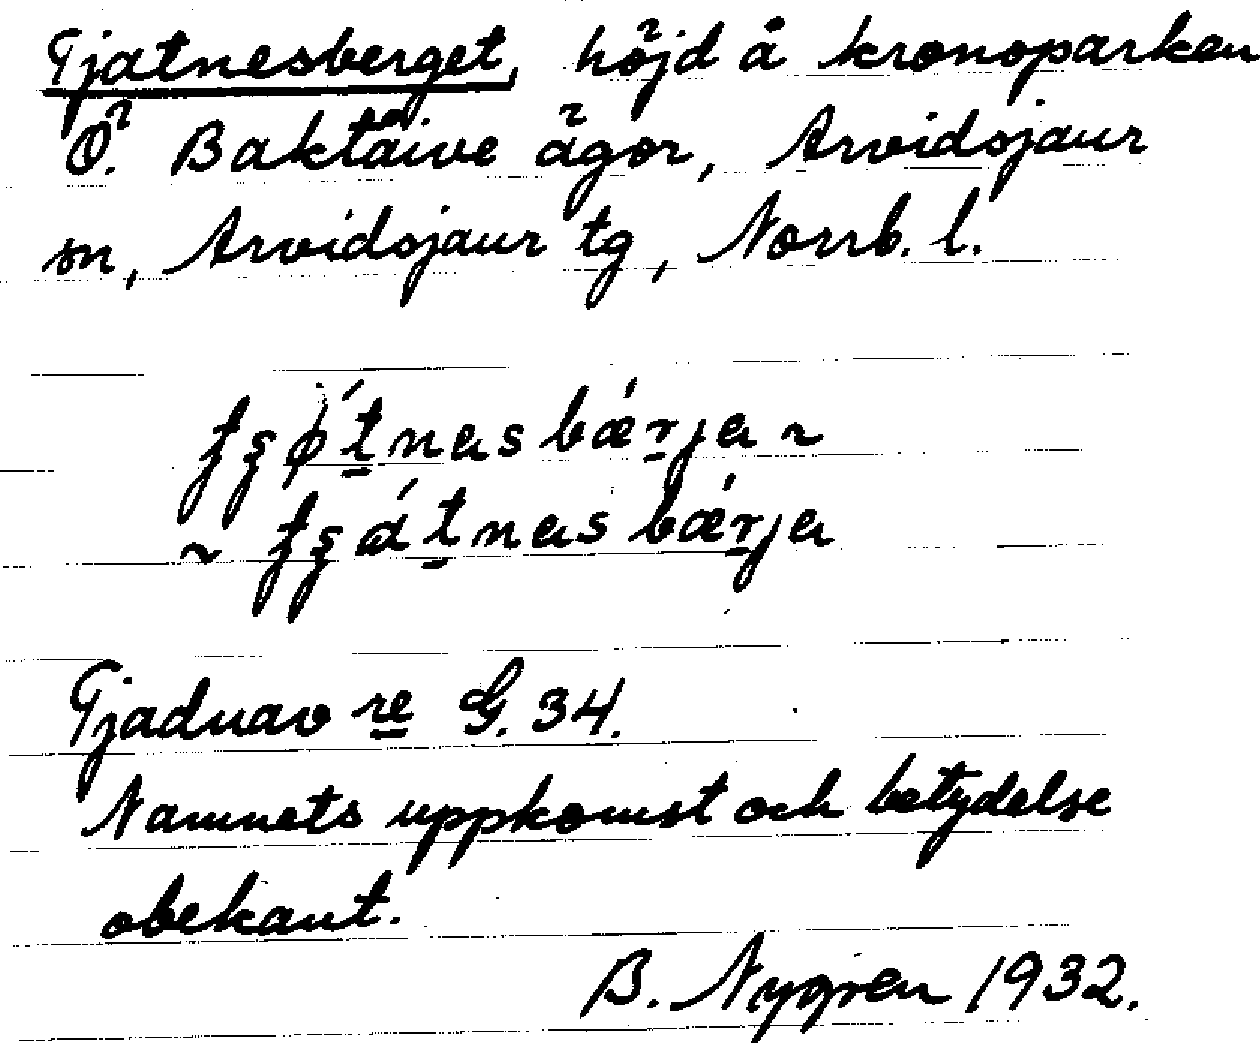 Tjatnesberget, höjd å kronoparken
Ö. Baktaive ägor, Arvidsjaur
sn, Arvidsjaur tg, Norrb. l.
tʂǿt̲nas bǽr̲ja ~
~ tʂát̲nas bǽr̲ja
Tjadnav re G. 34.
Namnets uppkomst och betydelse
obekant.
B. Nygren 1932.